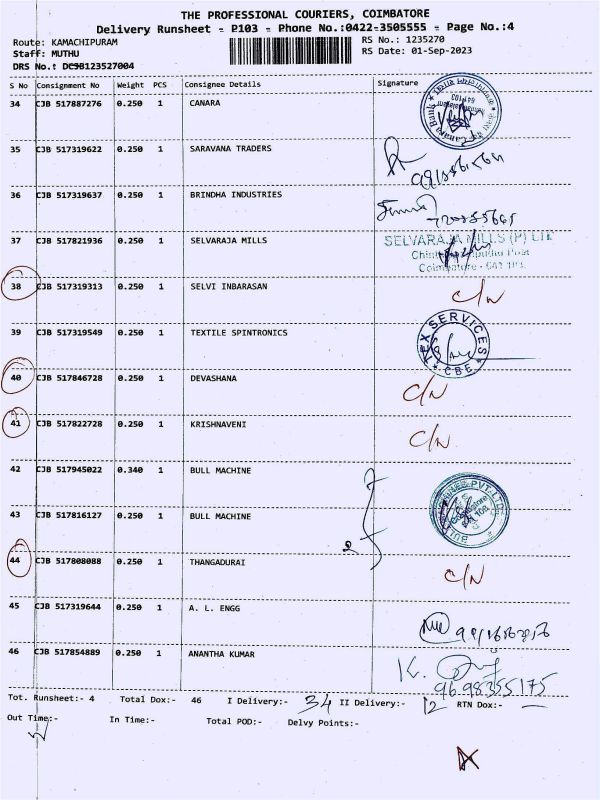 THE PROFESSIONAL COURIERS, COIMBATORE
Delivery Runsheet - P103 - Phone No.:0422-3505555 - Page No.:4
Route: KAMACHIPURAM RS No.: 1235270
Staff: MUTHU RS Date: 01-Sep-2023
DRS No.: DCJB123527004
S No Consignment No Weight PCS Consignee Details Signature
34 CJB 517887276 0.250 1 CANARA
Canara Bank
35 CJB 517319622 0.250 1 SARAVANA TRADERS
36 CJB 517319637 0.250 1 BRINDHA INDUSTRIES
37 CJB 517821936 0.250 1 SELVARAJA MILLS
SELVARAJA MILLS (P) LTD
Post
Coimbatore - 641 103.
38 CJB 517319313 0.250 1 SELVI INBARASAN C/N
39 CJB 517319549 0.250 1 TEXTILE SPINTRONICS
TEX SERVICES * CBE *
40 CJB 517846728 0.250 1 DEVASHANA C/N
41 CJB 517822728 0.250 1 KRISHNAVENI C/N
42 CJB 517945022 0.340 1 BULL MACHINE
43 CJB 517816127 0.250 1 BULL MACHINE
2
BULL MACHINES PVT. LTD. Coimbatore
44 CJB 517808088 0.250 1 THANGADURAI C/N
45 CJB 517319644 0.250 1 A. L. ENGG
46 CJB 517854889 0.250 1 ANANTHA KUMAR K.
96 98355175
Tot. Runsheet:- 4 Total Dox:- 46 I Delivery:- 34 II Delivery:- 12 RTN Dox:- —
Out Time:- In Time:- Total POD:- Delvy Points:-